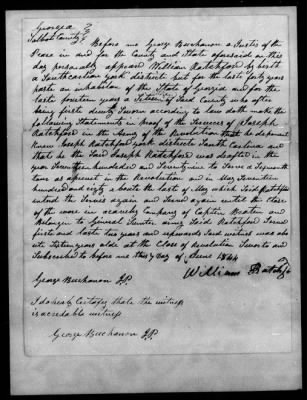 Georgia }
Talbot County }
Before me George Buchanon a Justis of the
Peace in and for the County and State aforesaid on this
day personaly appeared William Ratchford by birth
a Southcarlian york district but for the last forty years
paste an inhabiton of the State of Georgia and for the
laste fourteen years a Sitisen of Said County who after
being first duly Sworn according to law doth make the
following Statements in proof of the Services of Joseph
Ratchford in the Army of the Revolution that he deponent
knew Joseph Ratchford york district South Carolina and
that he the Said Joseph Ratchford was drafted in the
year Seventeen hundred and Seventynine to Serve a Tour
time as in the Revolution and in May Seventeen
hundred and eigty a boute the last of May which Said Ratchford
enterd the Servces again and Served again untill the close
of the ware in acavelry company of Captin
Belongin to General Sumter army Said Ratchford Served
first and laste two years and upwards Said witness was abo
ute years olde at the Close of revolution Swornto and
Subscrcibed to before me this 4 Day of June 1844
William Ratchford
George Buchanon J.P.
I do hereby Certafey that the witness
is acredable witness
George Buchanon J.P.